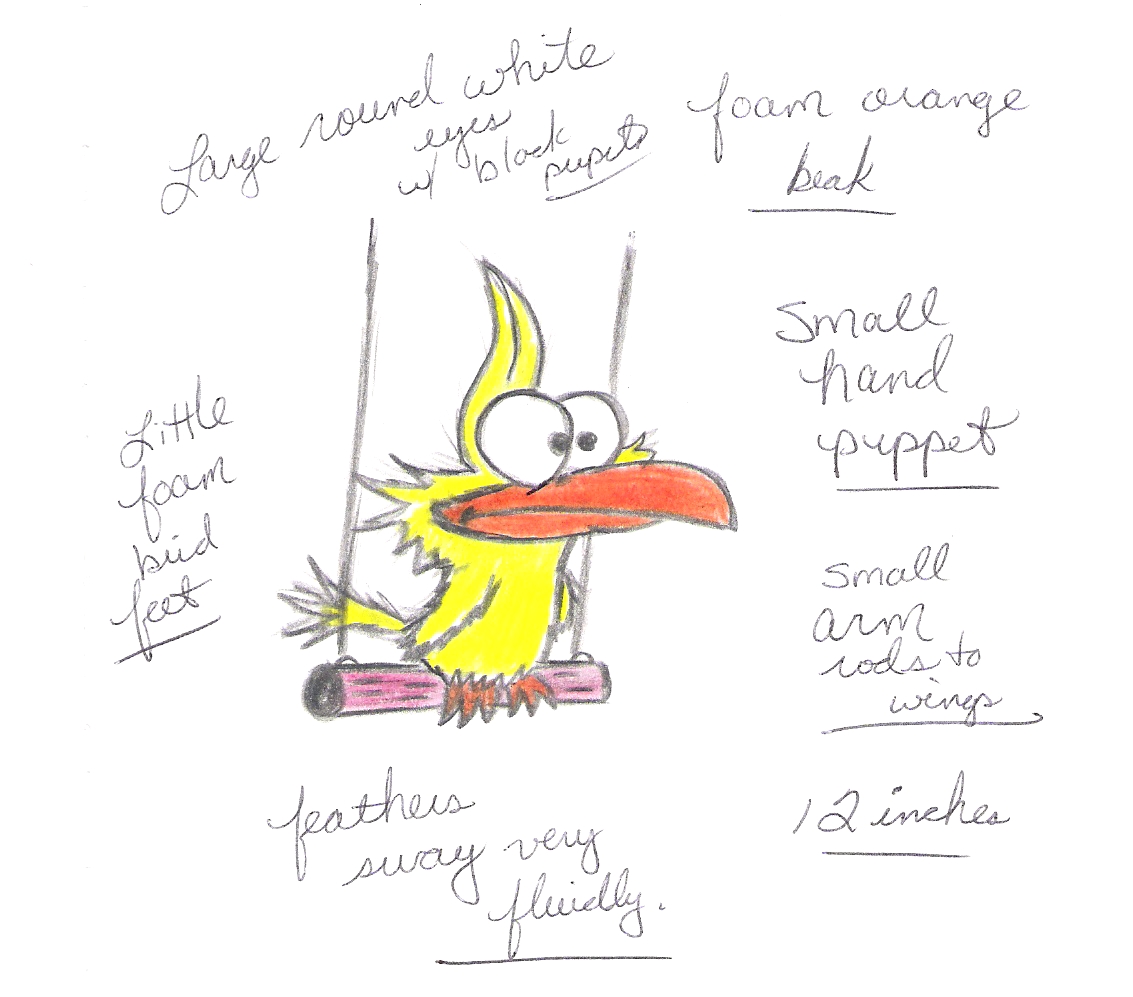 Large round white
eyes
w/ black
pupils
foam orange
beak
Small
hand
puppet
Little
foam
bird
feet
small
arm
rods to
wings
feathers
sway very
fluidly.
12 inches